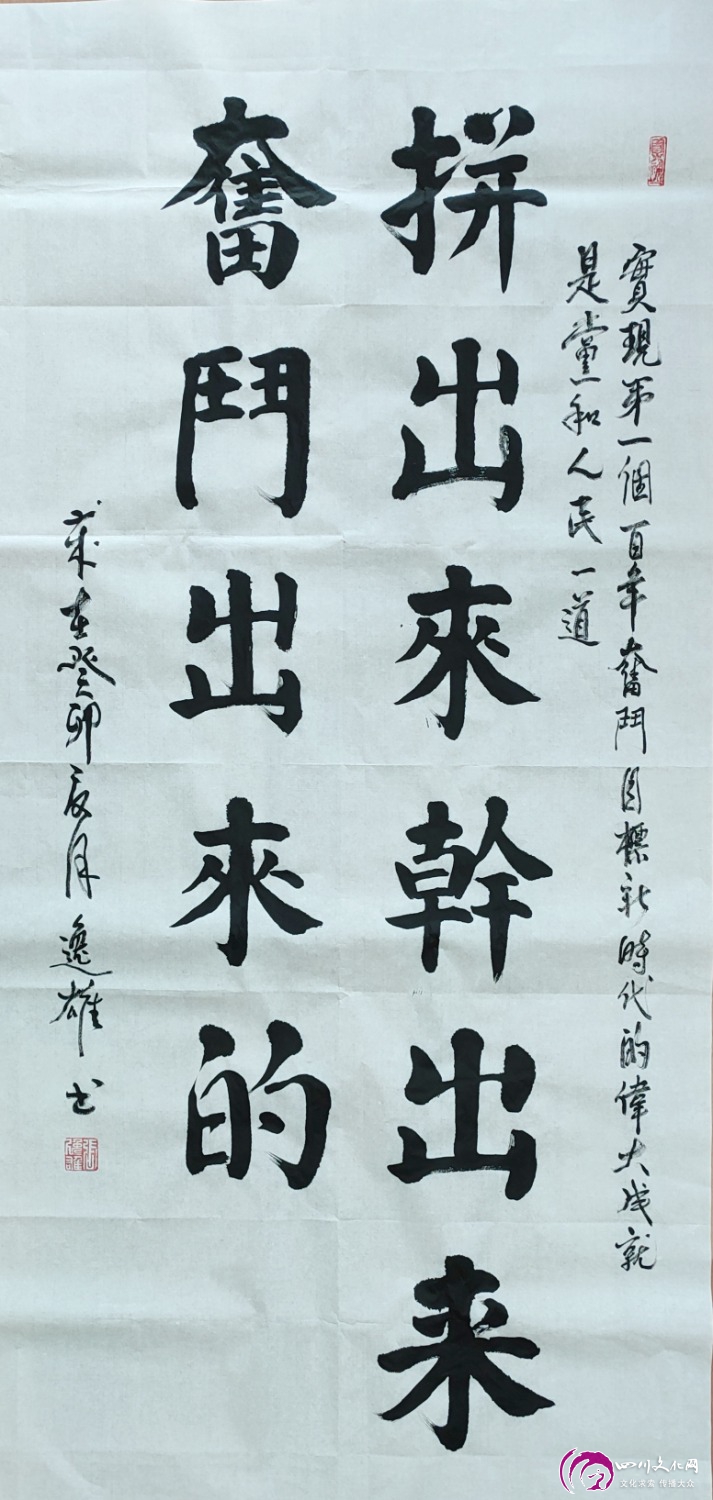 實現第一個百年奮鬥目標新時代的偉大成就
是黨和人民一道
拼出來幹出来
奮鬥出來的
歲在癸卯辰月逸雄书
四川文化网
文化求索 传播大众